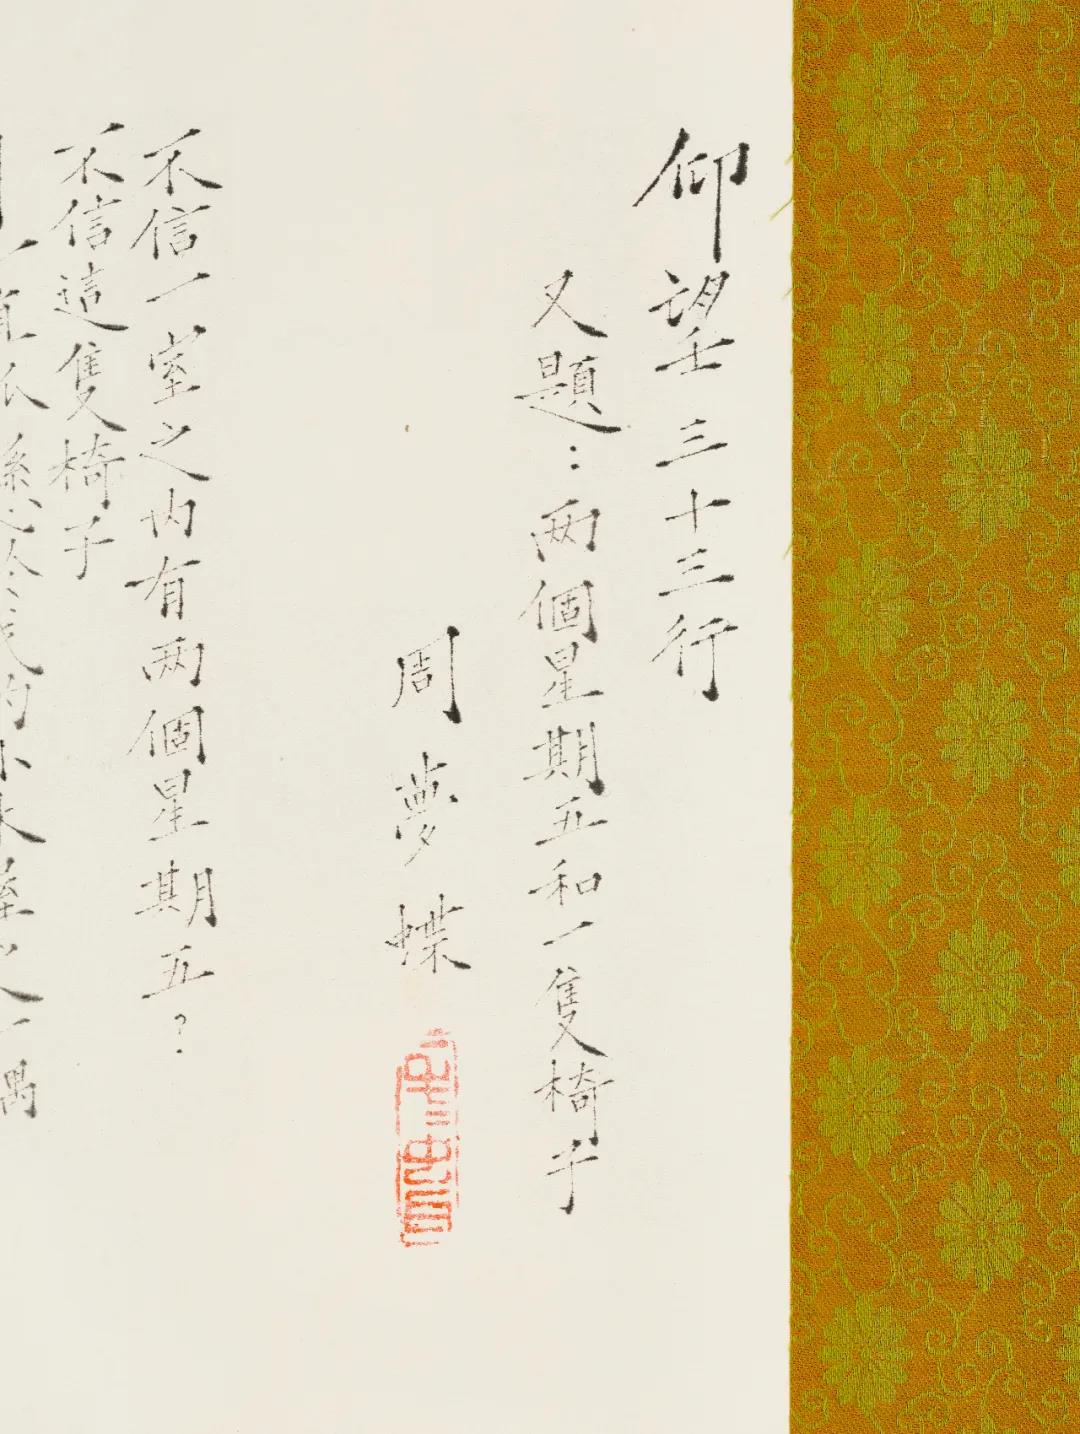 仰望三十三行
又題：兩個星期五和一隻椅子
周夢蝶
不信一室之內有兩個星期五？
不信這隻椅子